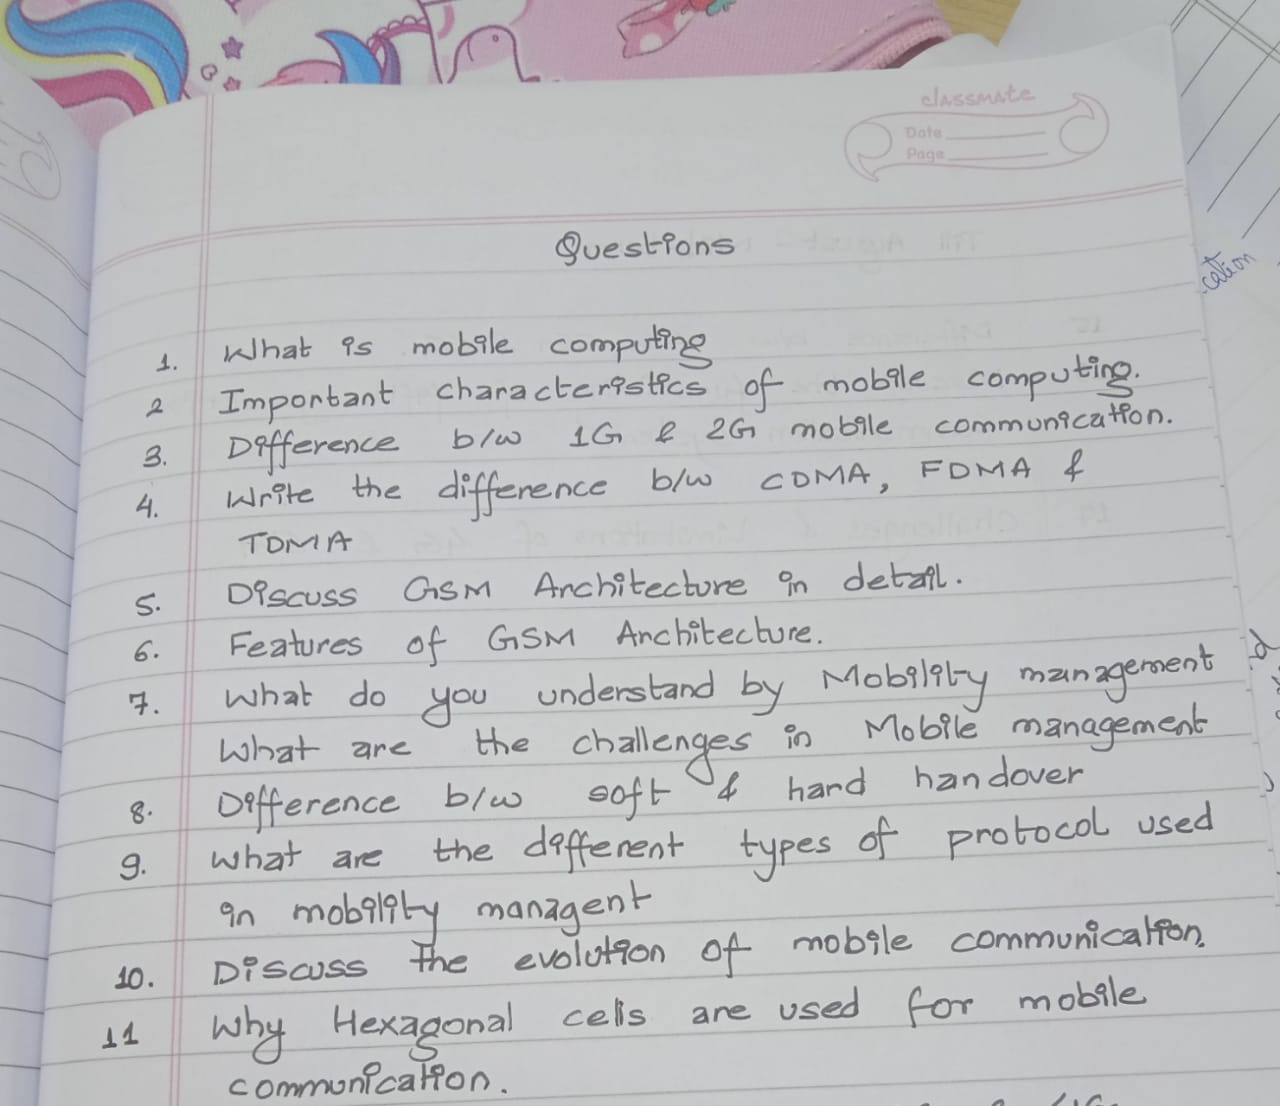 classmate
Date
Page
Questions
1. What is mobile computing
2 Important characteristics of mobile computing.
3. Difference b/w 1G & 2G mobile communication.
4. Write the difference b/w CDMA, FDMA &
TDMA
5. Discuss GSM Architecture in detail.
6. Features of GSM Architecture.
7. What do you understand by Mobility management
What are the challenges in Mobile management
8. Difference b/w soft & hard handover
9. What are the different types of protocol used
in mobility managent
10. Discuss the evolution of mobile communication.
11 Why Hexagonal cells are used for mobile
communication.
cation